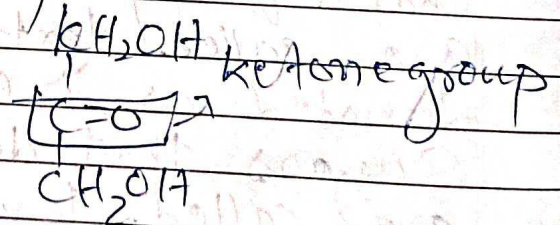 CH₂OH ketone group
C=O
CH₂OH